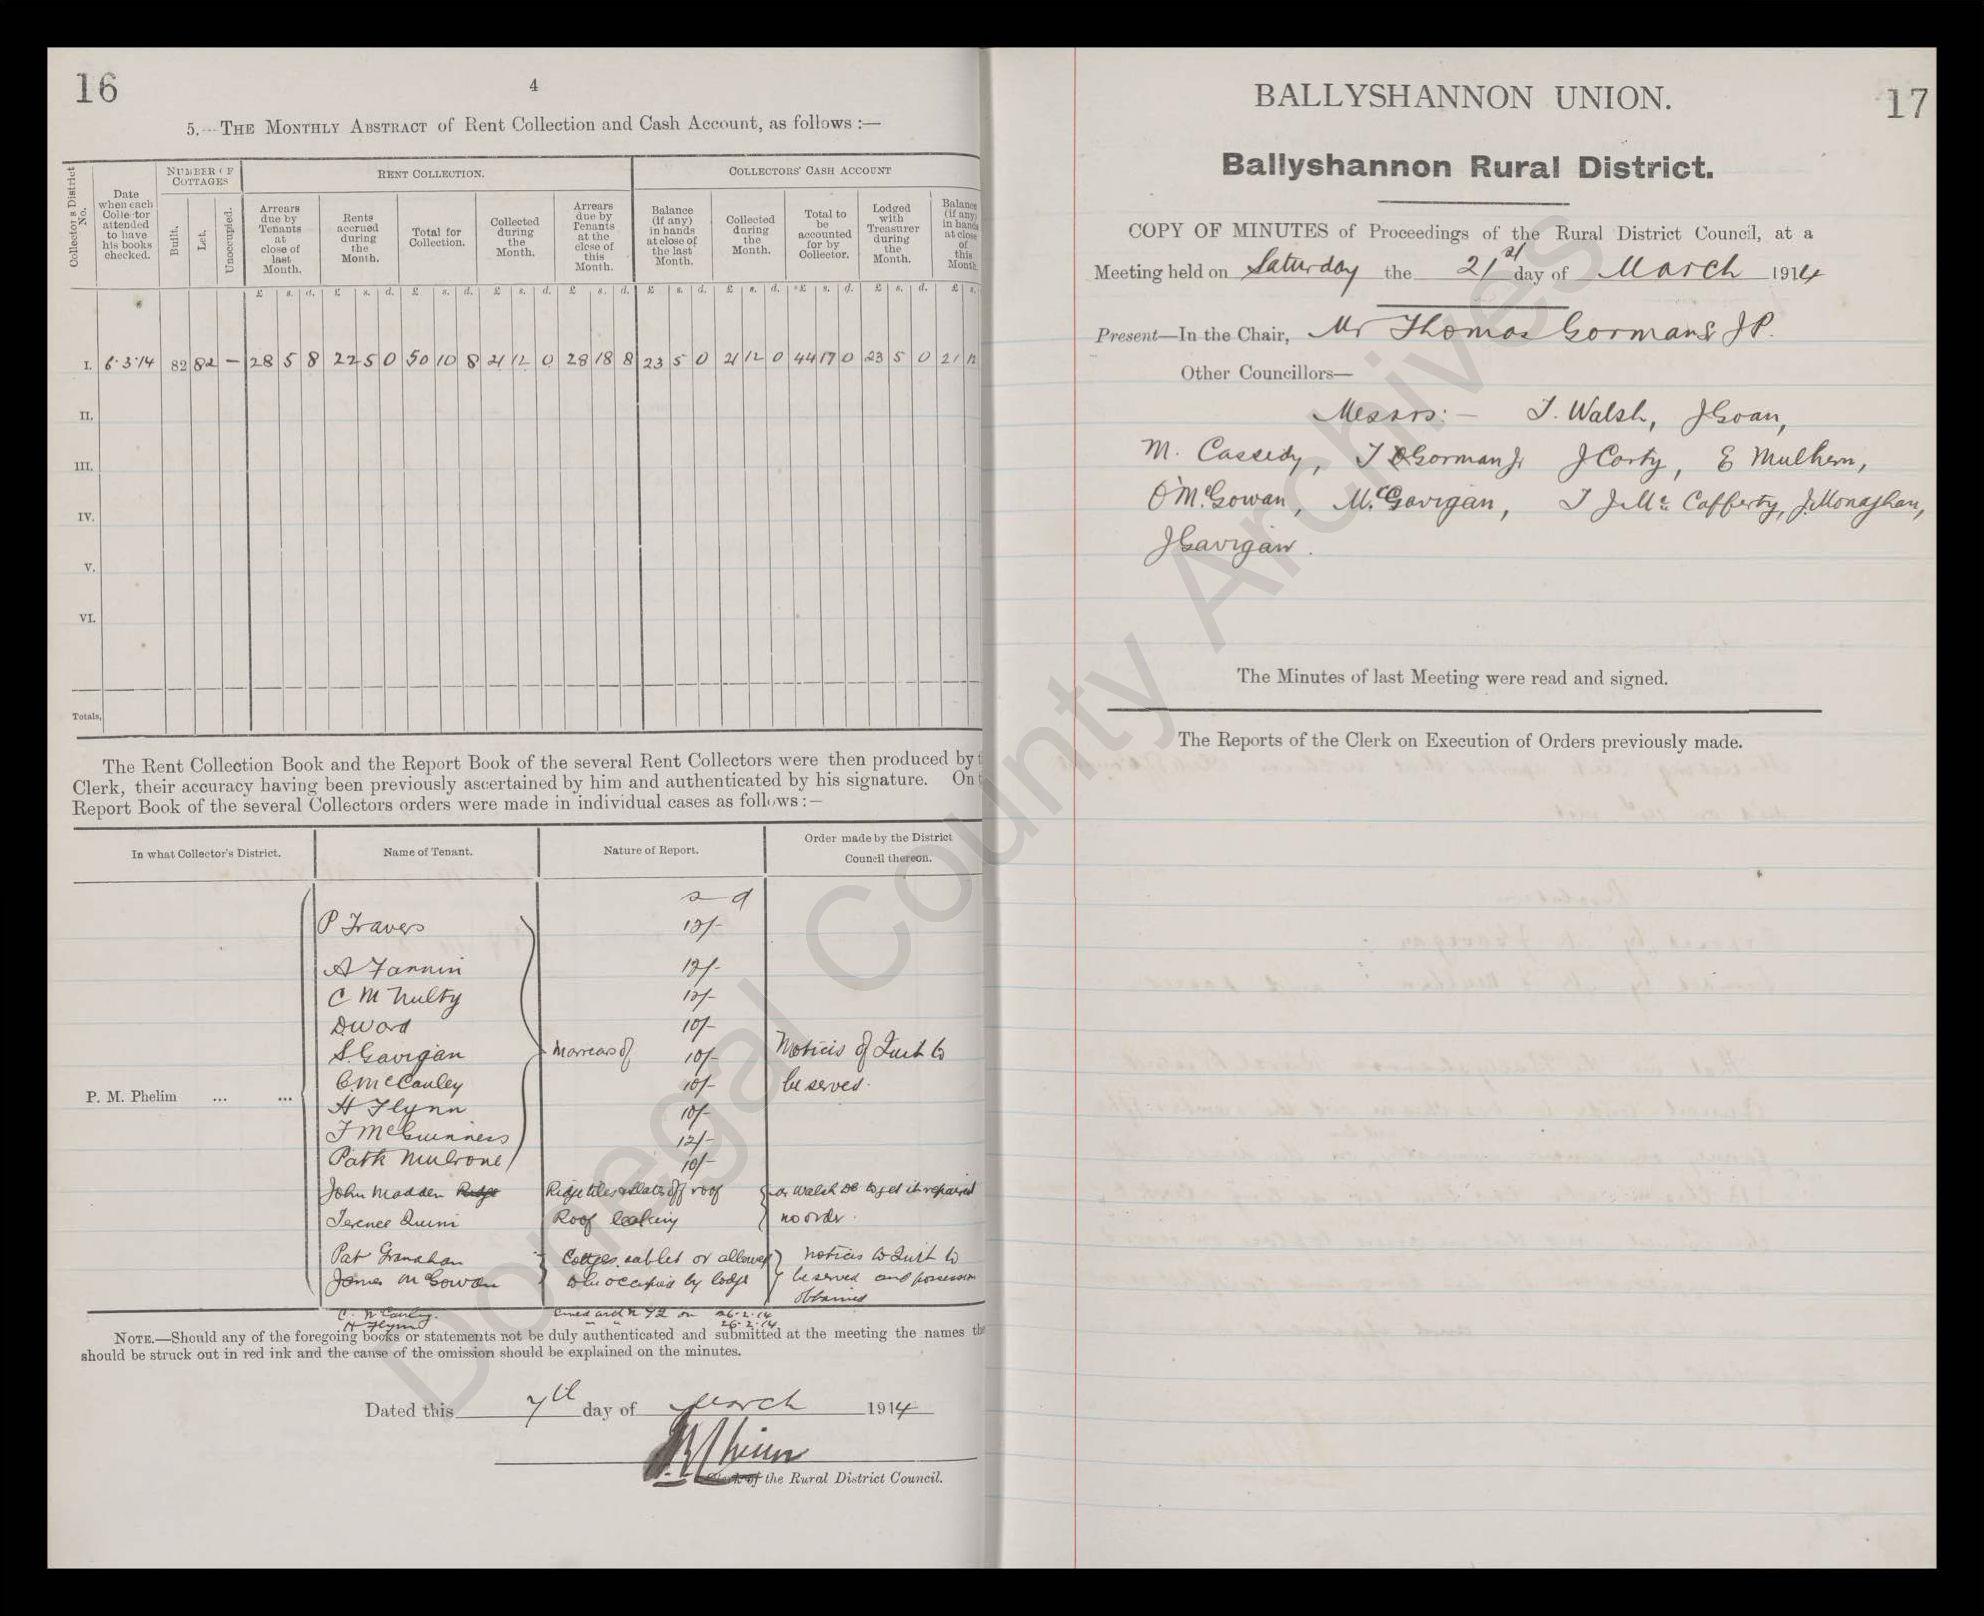 16
4
5.—THE MONTHLY ABSTRACT of Rent Collection and Cash Account, as follows :—
Collector's District No.
Date when each Collector attended to have his books checked.
NUMBER OF COTTAGES
Built.
Let.
Unoccupied.
RENT COLLECTION.
Arrears due by Tenants at close of last Month.
Rents accrued during the Month.
Total for Collection.
Collected during the Month.
Arrears due by Tenants at the close of this Month.
COLLECTORS' CASH ACCOUNT
Balance (if any) in hands at close of the last Month.
Collected during the Month.
Total to be accounted for by Collector.
Lodged with Treasurer during the Month.
Balance (if any) in hands at close of this Month
£ s. d. £ s. d. £ s. d. £ s. d. £ s. d. £ s. d. £ s. d. £ s. d. £ s. d. £ s.
I. 6·3·14 82 82 — 28 5 8 22 5 0 50 10 8 21 12 0 28 18 8 23 5 0 21 12 0 44 17 0 23 5 0 21 12
II.
III.
IV.
V.
VI.
Totals,
The Rent Collection Book and the Report Book of the several Rent Collectors were then produced by
Clerk, their accuracy having been previously ascertained by him and authenticated by his signature. On
Report Book of the several Collectors orders were made in individual cases as follows :—
In what Collector's District.
Name of Tenant.
Nature of Report.
Order made by the District Council thereon.
s d
P Travers 12/-
A Fannin 12/-
C McNulty 12/-
D Ward 10/-
S. Gavigan In arrears of 10/- Notices of Quit to
C. McCauley 10/- be served.
P. M. Phelim ... ...
H Flynn 10/-
F McGuinness 12/-
Patk Mulrone 10/-
John Madden Ridge Ridge tiles & slates off roof Mr Walsh DC to get it repaired
Terence Quinn Roof leaking no order.
Pat Granahan Cottages sublet or allowed Notices to Quit to
James McGowan to be occupied by lodge be served and possession
obtained
C. McCauley. 26·2·14
H Flynn " " 26·2·14
NOTE.—Should any of the foregoing books or statements not be duly authenticated and submitted at the meeting the names the
should be struck out in red ink and the cause of the omission should be explained on the minutes.
Dated this 7th day of March 1914
Clerk of the Rural District Council.
17
BALLYSHANNON UNION.
Ballyshannon Rural District.
COPY OF MINUTES of Proceedings of the Rural District Council, at a
Meeting held on Saturday the 21st day of March 1914
Present—In the Chair, Mr Thomas Gorman Sr JP.
Other Councillors—
Messrs:— T. Walsh, J Goan,
M. Cassedy, T Gorman Jr J Carty, E Mulhern,
O McGowan, McGavigan, T J McCafferty, J. Monaghan,
J Gavigan.
The Minutes of last Meeting were read and signed.
The Reports of the Clerk on Execution of Orders previously made.
Donegal County Archives